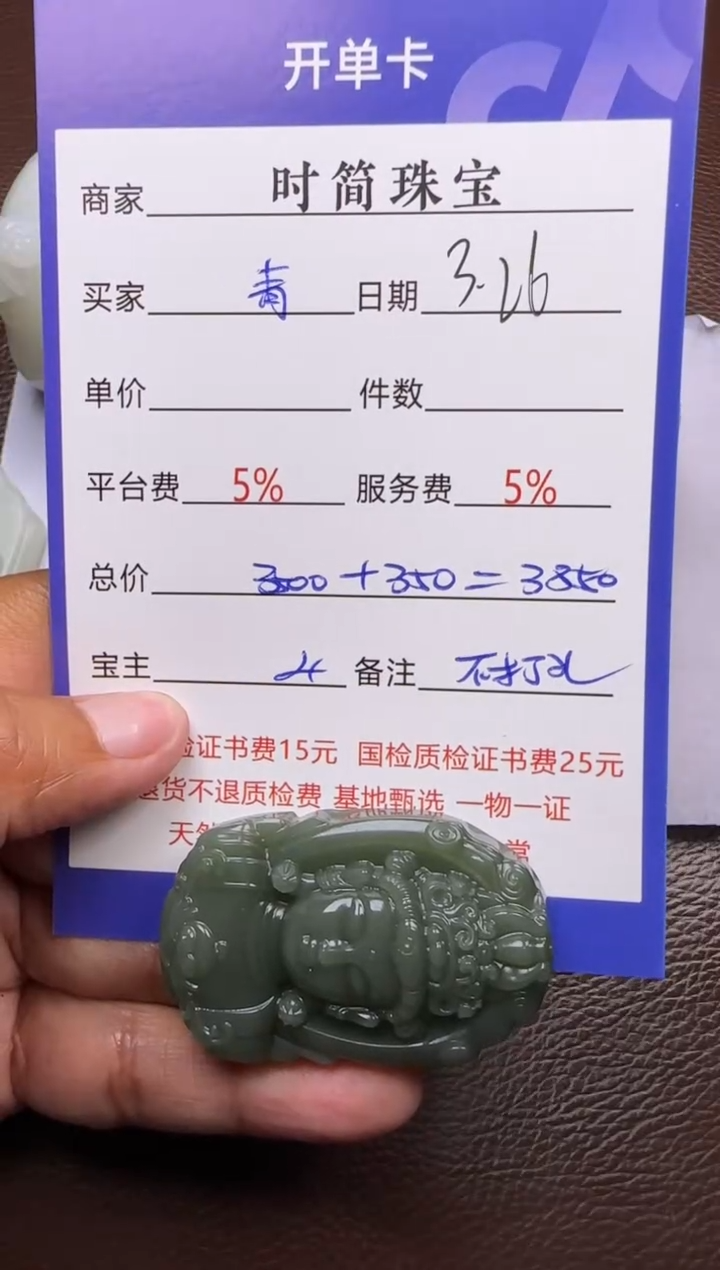 开单卡
商家 时简珠宝
买家 青 日期 3.26
单价 件数
平台费 5% 服务费 5%
总价 3500+350=3850
宝主 4 备注 不打孔
检证书费15元 国检质检证书费25元
退货不退质检费 基地甄选 一物一证
天然